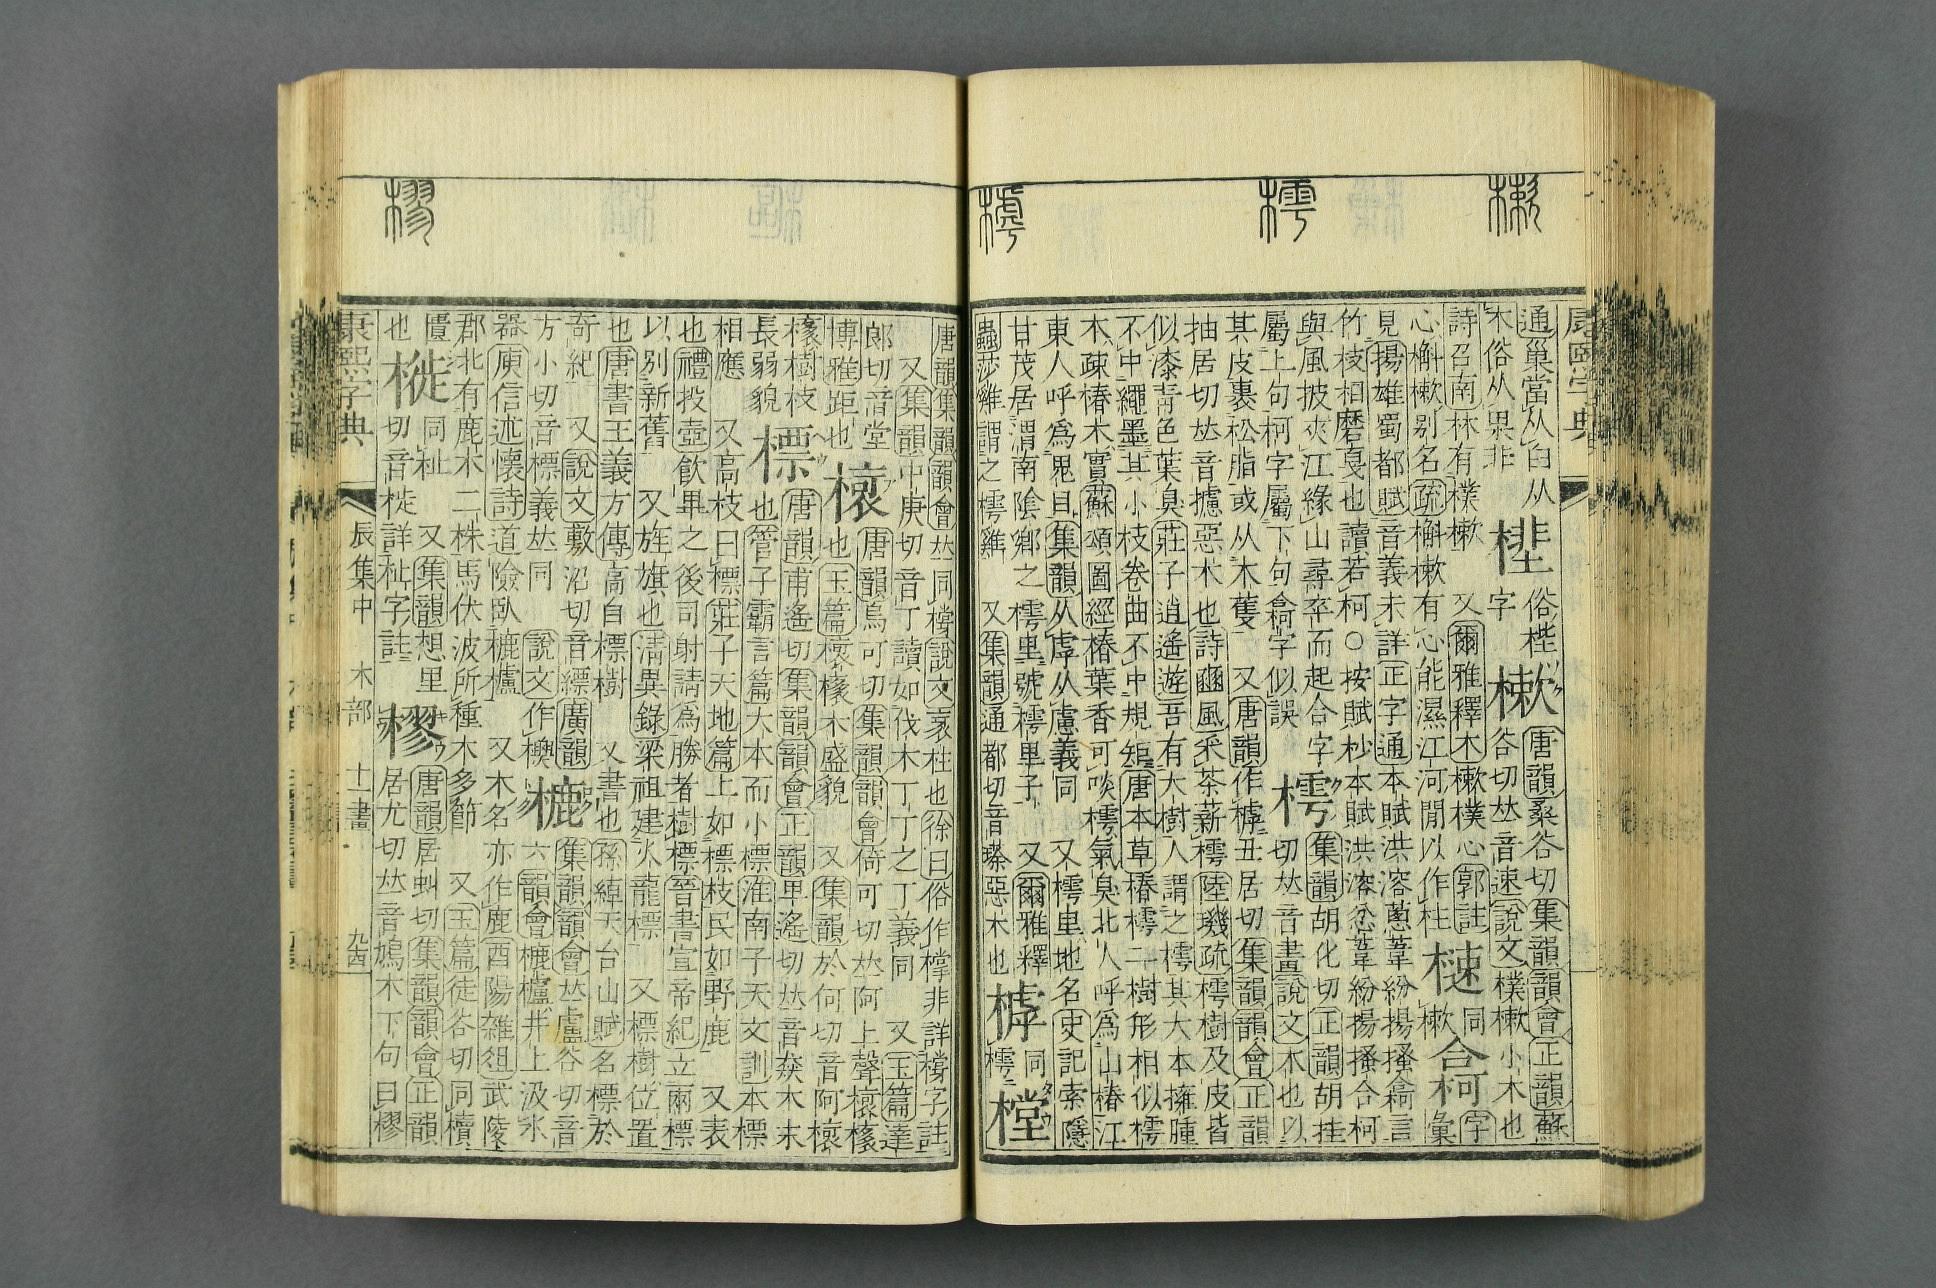 樕
樗
樛
康熙字典
通巢當从臼从
木俗从果非
俗梐
字
樕
唐韻桑谷切集韻韻會正韻蘇
谷切𠀤音速說文樸樕小木也
詩召南林有樸樕 又爾雅釋木樕樸心郭註
心槲樕別名疏槲樕有心能濕江河閒以作柱
同
樕
字
彙
見揚雄蜀都賦音義未詳正字通本賦洪溶蔥葦紛揚搔翕言
竹枝相磨戛也讀若柯○按賦杪本賦洪溶忿葦紛揚搔合柯
與風披夾江緣山尋卒而起合字
屬上句柯字屬下句字似誤
樗
集韻胡化切正韻胡挂
切𠀤音畫說文木也以
其皮裹松脂或从木蒦 又唐韻作㯉丑居切集韻韻會正韻
抽居切𠀤音攄惡木也詩豳風采茶薪樗陸璣疏樗樹及皮皆
似漆靑色葉臭莊子逍遙遊吾有大樹人謂之樗其大本擁腫
不中繩墨其小枝卷曲不中規矩唐本草椿樗二樹形相似樗
木疎椿木實蘇頌圖經椿葉香可啖樗氣臭北人呼爲山椿江
東人呼爲鬼目集韻从虖从慮義同 又樗里地名史記索隱
甘茂居渭南陰鄕之樗里號樗里子 又爾雅釋
蟲莎雞謂之樗雞 又集韻通都切音惡木也
㯉
同
樗
樘
唐韻集韻韻會𠀤同橕說文衺柱也徐曰俗作撑非詳橕字註
又集韻中庚切音丁讀如伐木丁丁之丁義同 又玉篇達
郞切音堂
博雅距也
唐韻烏可切集韻韻會倚可切𠀤阿上聲
也玉篇木盛貌 又集韻於何切音阿
樹枝
長弱貌
標
唐韻甫遙切集韻韻會正韻卑遙切𠀤音猋木末
也管子霸言篇大本而小標淮南子天文訓本標
相應 又高枝曰標莊子天地篇上如標枝民如野鹿 又表
也禮投壺飮畢之後司射請爲勝者樹標晉書宣帝紀立兩標
以別新舊 又旌旗也淸異錄梁祖建火龍標 又標樹位置
也唐書王義方傳高自標樹 又書也孫綽天台山賦名標於
奇紀 又說文敷沼切音縹廣韻
方小切音標義𠀤同 說文作
樚
集韻韻會𠀤盧谷切音
六韻會樚櫨井上汲水
器庾信述懷詩道險臥樚櫨 又木名亦作鹿酉陽雜俎武陵
郡北有鹿木二株馬伏波所種木多節 又玉篇徒谷切同櫝
匱
也
同杫 又集韻想里
切音徙詳杫字註
樛
唐韻居虯切集韻韻會正韻
居尤切𠀤音鳩木下句曰樛
康熙字典 辰集中 木部 十一畫 九四